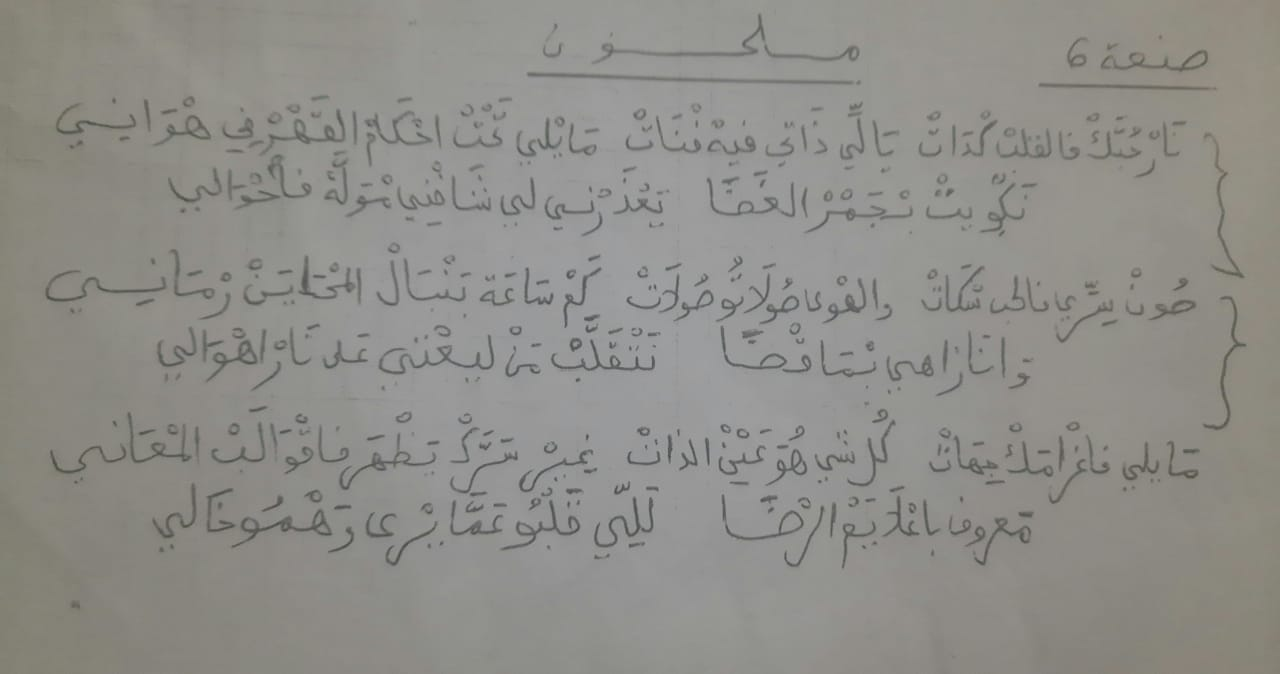 صنعة 6 ملحون
نَارْ حُبَّكْ فالقلبْ كْدَاتْ يَا لِّي ذَاتِي فيهْ فْنَاتْ مَا يْلِي تَحْتْ احْكَامْ القَهْرْ في هْوَانِي
نَكْوِيتْ بْجَمْرْ الغَضَا يَعْذَرْنِي لِي شَافْنِي مُولَّهْ فَأحْوَالِي
صُونْ سِرِّي فالحب شكَاتْ والهوى صُولَاتُو صُولَاتْ كَمْ سَاعَة تَنْبَالْ المْحَايَنْ زْمَانِي
وَانَا رَاهِي بْمَا قْضَا نَتْقَلَّبْ مَنْ لِيعْتِي عَلى نَارْ اهْوَالِي
مَا يلي فاغْرَامَكْ جِهَاتْ كُلْ شي هُوَ عَيْنْ الذاتْ غِيرْ سَرَّكْ يَظْهَر فاقْوَالَبْ المْعَانِي
مَعروف باعْلَايَمْ الرْضَا لَلِّي قَلْبُو عَمَّا يْرَى وَهْمُو خَالي